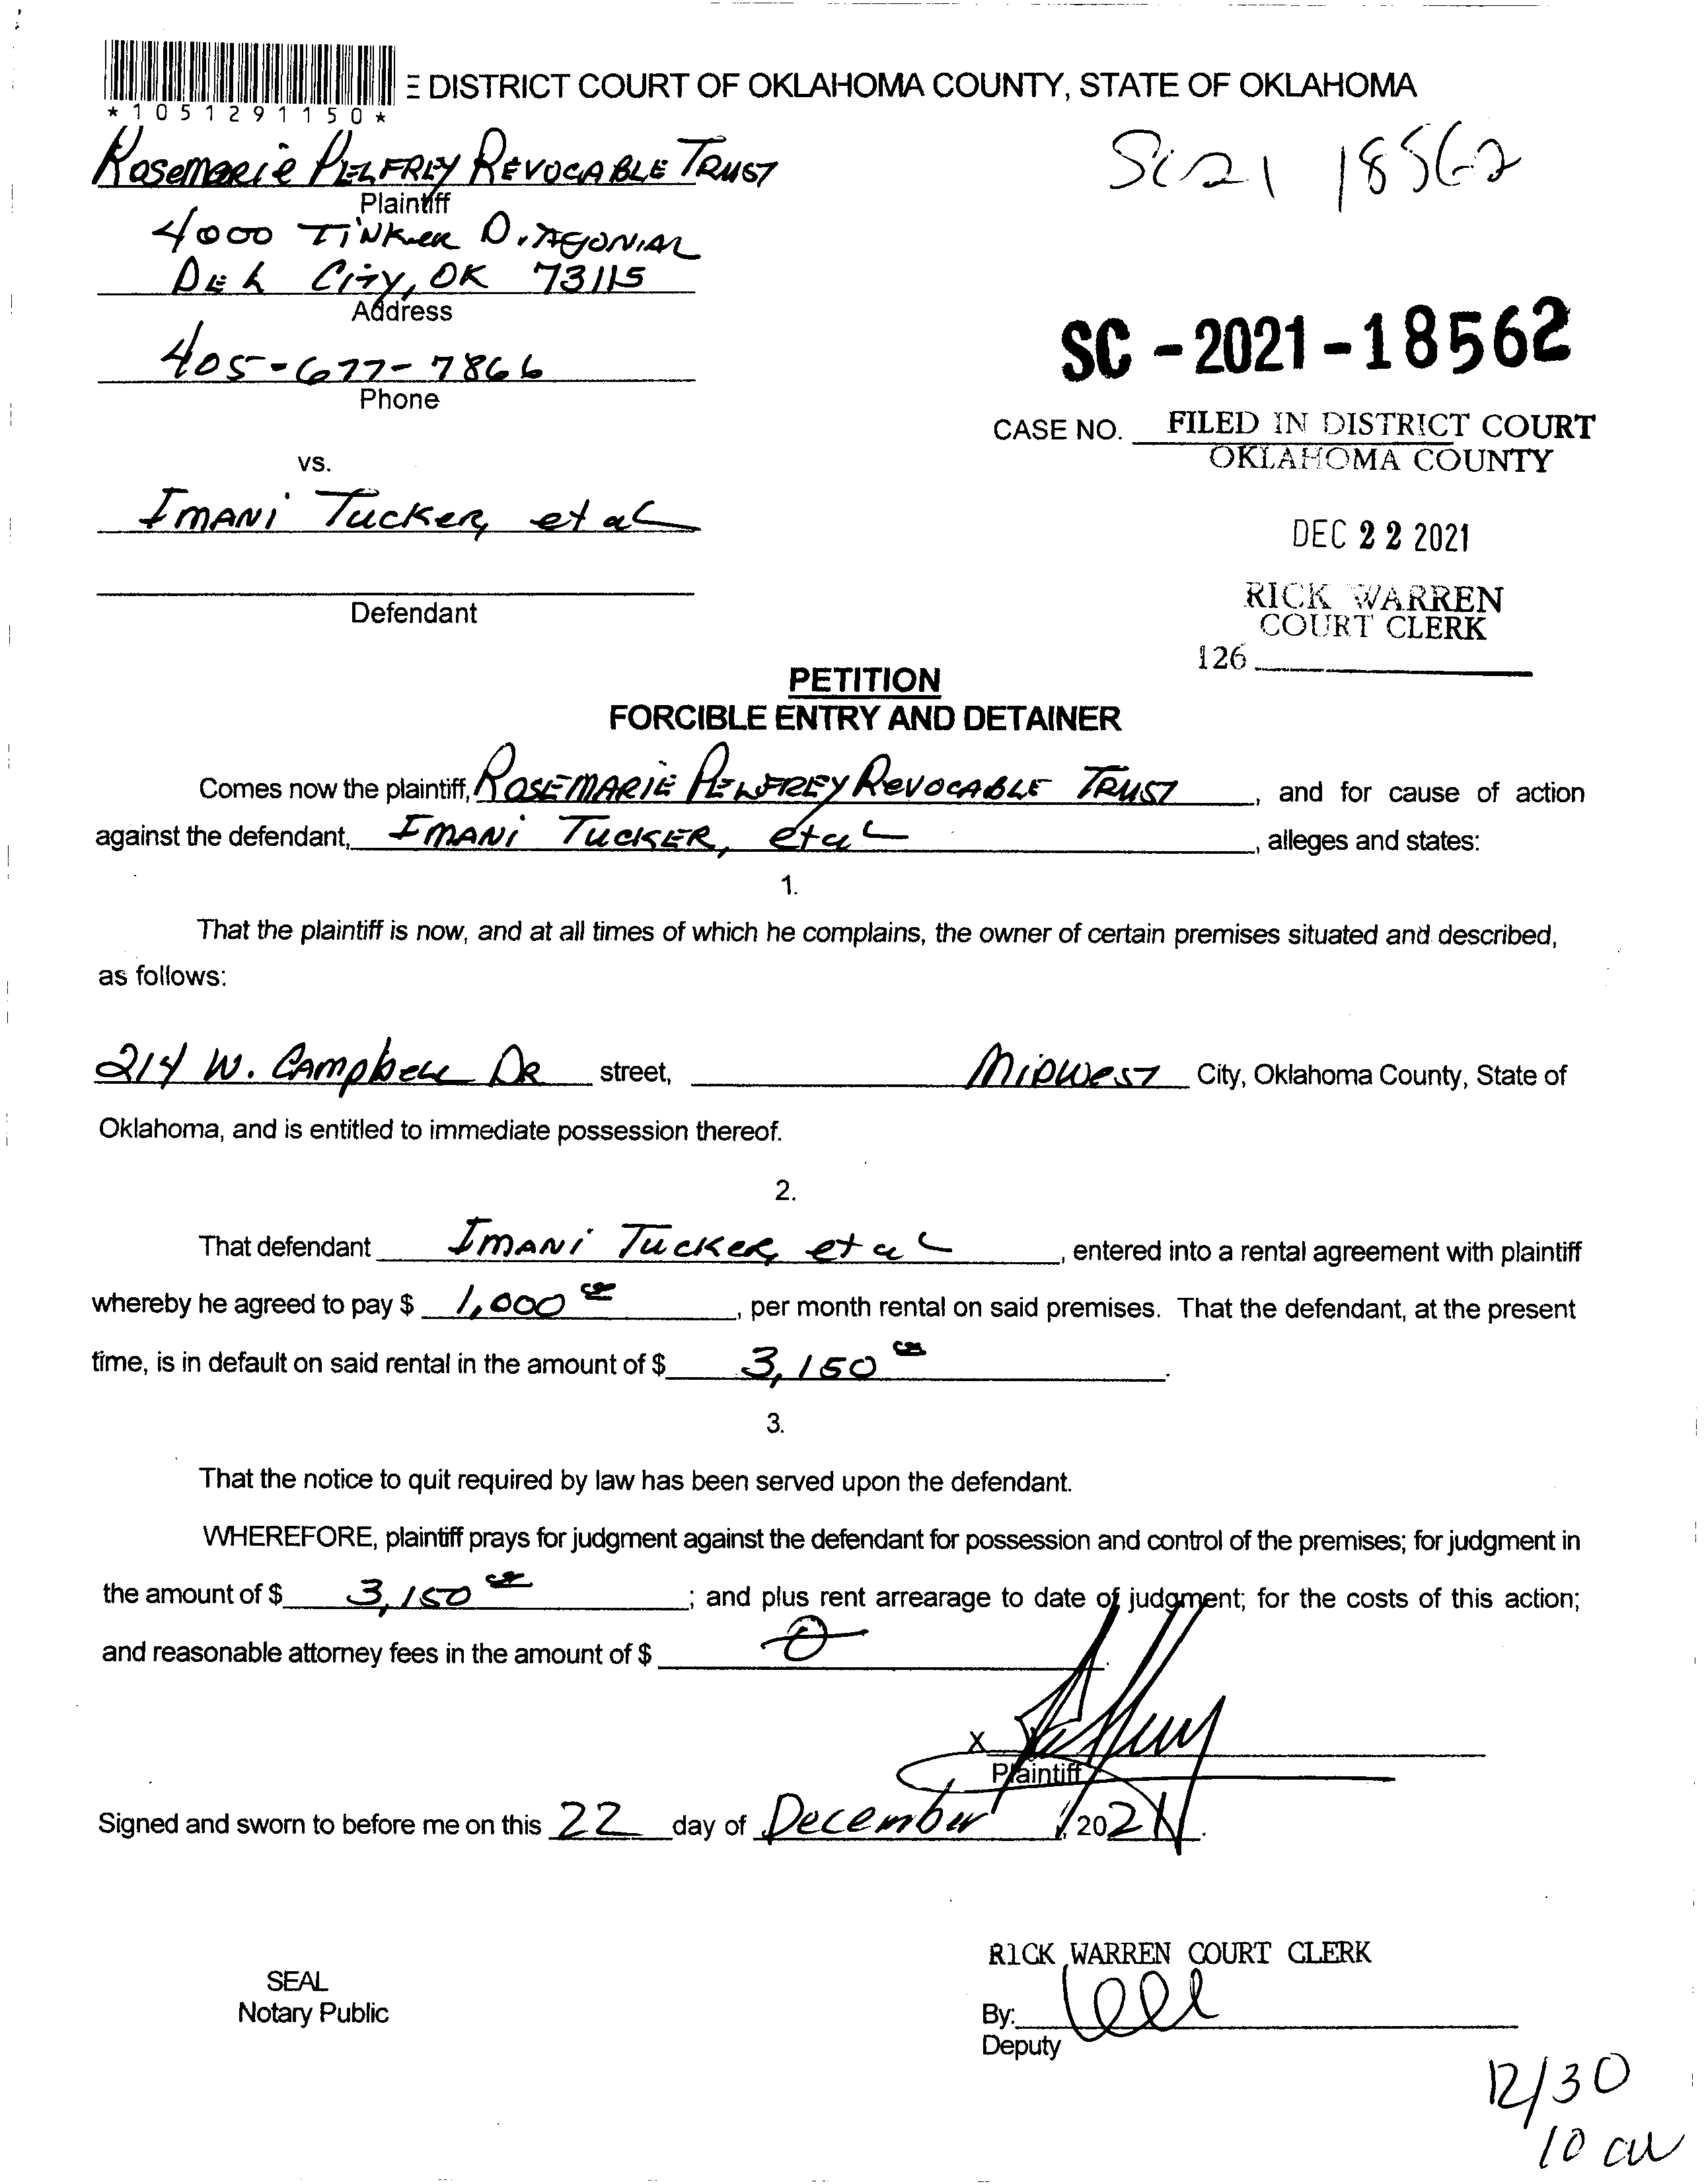 E DISTRICT COURT OF OKLAHOMA COUNTY, STATE OF OKLAHOMA
*1051291150*
Rosemarie Pelfrey Revocable Trust
Sc 21 18562
Plaintiff
4000 Tinker Diagonial
Del City, OK 73115
Address
SC - 2021 - 18562
405-677-7866
Phone
CASE NO. FILED IN DISTRICT COURT
OKLAHOMA COUNTY
vs.
Imani Tucker, et al
DEC 22 2021
Defendant
RICK WARREN
COURT CLERK
126
PETITION
FORCIBLE ENTRY AND DETAINER
Comes now the plaintiff, Rosemarie Pelfrey Revocable Trust, and for cause of action
against the defendant, Imani Tucker, et al, alleges and states:
1.
That the plaintiff is now, and at all times of which he complains, the owner of certain premises situated and described,
as follows:
214 W. Campbell DR street, Midwest City, Oklahoma County, State of
Oklahoma, and is entitled to immediate possession thereof.
2.
That defendant Imani Tucker, et al, entered into a rental agreement with plaintiff
whereby he agreed to pay $ 1,000 00, per month rental on said premises. That the defendant, at the present
time, is in default on said rental in the amount of $ 3,150 00.
3.
That the notice to quit required by law has been served upon the defendant.
WHEREFORE, plaintiff prays for judgment against the defendant for possession and control of the premises; for judgment in
the amount of $ 3,150 00; and plus rent arrearage to date of judgment; for the costs of this action;
and reasonable attorney fees in the amount of $ 0.
X
Plaintiff
Signed and sworn to before me on this 22 day of December, 2021.
RICK WARREN COURT CLERK
SEAL
Notary Public
By:
Deputy
12/30
10